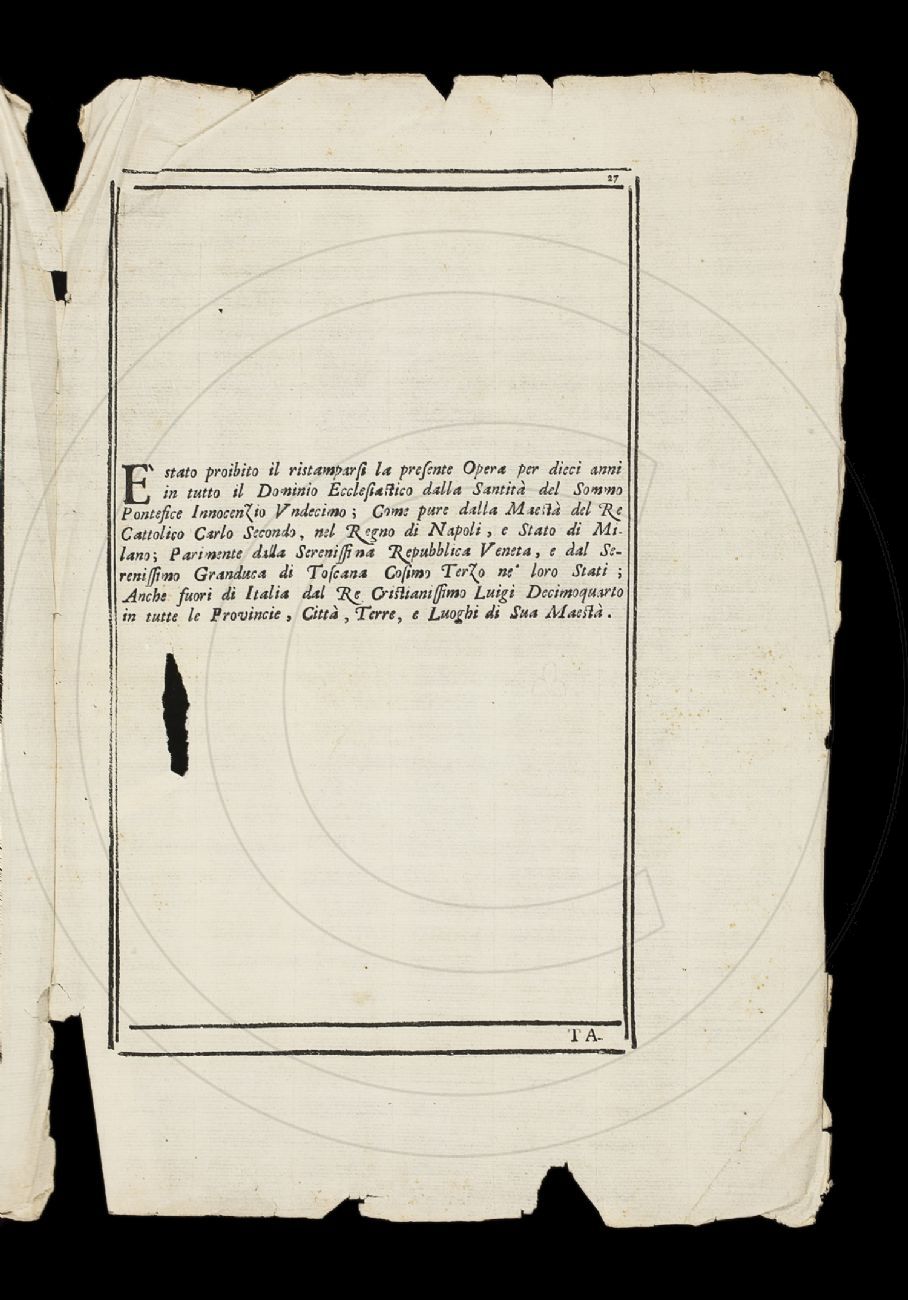 27
E' stato proibito il ristamparſi la preſente Opera per dieci anni
in tutto il Dominio Eccleſiaſtico dalla Santità del Sommo
Pontefice Innocenzio Vndecimo ; Come pure dalla Maeſtà del Re
Cattolico Carlo Secondo, nel Regno di Napoli , e Stato di Mi-
lano; Parimente dalla Sereniſſima Repubblica Veneta , e dal Se-
reniſſimo Granduca di Toſcana Coſimo Terzo ne' loro Stati ;
Anche fuori di Italia dal Re Criſtianiſſimo Luigi Decimoquarto
in tutte le Provincie , Città , Terre , e Luoghi di Sua Maeſtà .
TA-